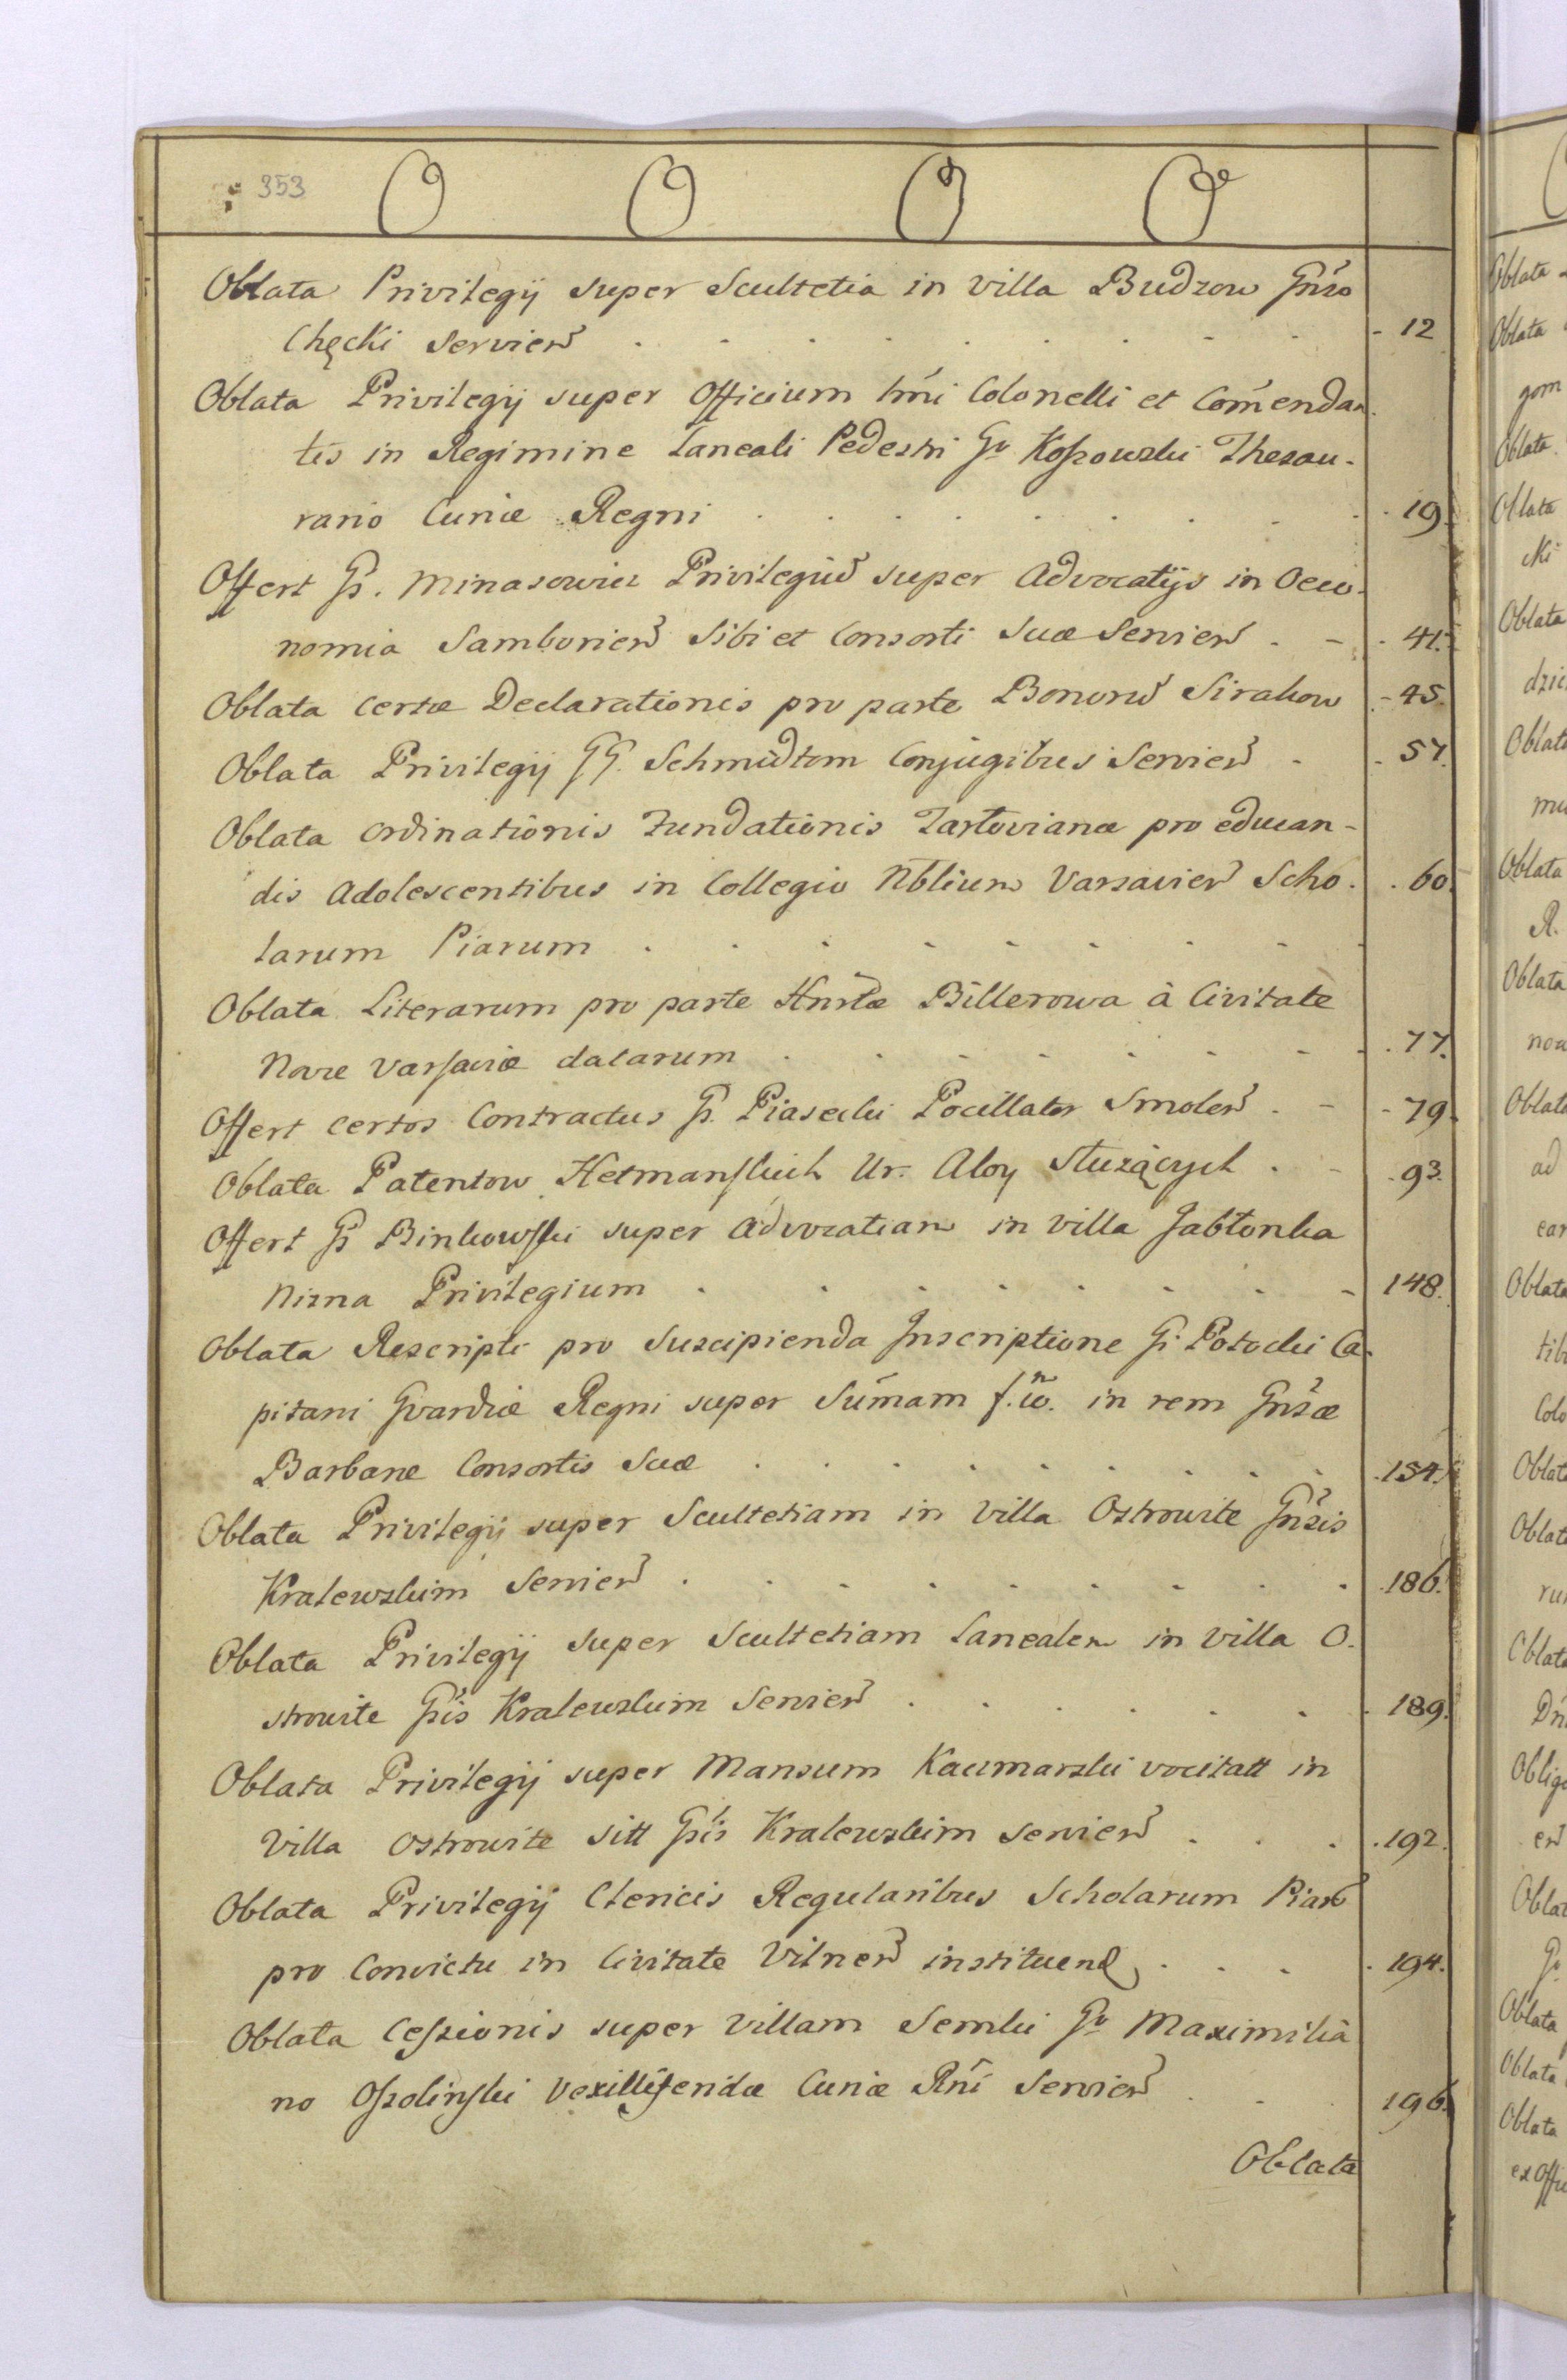 353 O O O O
Oblata Privilegij super Scultetia in villa Budzow Gnso
Chęcki servien - 12
Oblata Privilegij super Officium Imi Colonelli et Comendan-
tis in Regimine Laneali Pedestri Go Koszowski Thesau-
rario Curiæ Regni 19.
Offert Gs. Minasowicz Privilegiu super Advocatijs in Oeco-
nomia Samborien Sibi et Consorti Suæ Servien - 41.
Oblata certæ Declarationis pro parte Bonoru Sirakow - 45.
Oblata Privilegij GG. Schmidtom Conjugibus Servien - 57.
Oblata Ordinationis Fundationis Zartoviana pro educan-
dis Adolescentibus in Collegio Nblium Varsavien Scho- 60.
larum Piarum
Oblata Literarum pro parte Hnstæ Billerowa à Civitate
Novæ Varsaviæ datarum 77.
Offert certos Contractus Gs. Piasecki Pocillator Smolen - 79.
Oblata Patentow Hetmanskich Ur. Aloy Służących - 93.
Offert Gs Binkowski super Advocatiam in villa Jabłonka
Nizna Privilegium 148.
Oblata Rescripti pro Suscipienda Inscriptione Gi Potocki Ca-
pitani Gvardiæ Regni super Sumam in rem Gnsæ
Barbaræ Consortis Suæ 154.
Oblata Privilegij super Scultetiam in Villa Ostrowite Gnsis
Kralewskim Servien 186.
Oblata Privilegij super Scultetiam Lanealem in villa O-
strowite Gsis Kralewskim Servien 189.
Oblata Privilegij super Mansum Kaczmarski vocitatt in
Villa Ostrowite sitt Gsis Kralewskim servien 192.
Oblata Privilegij Clericis Regularibus Scholarum Piaru
pro Convictu in Civitate Vilnen instituend 194.
Oblata Cessionis super Villam Semki Go Maximilia
no Ossolinski Vexilliferidæ Curiæ Rni Servien 196.
Oblata